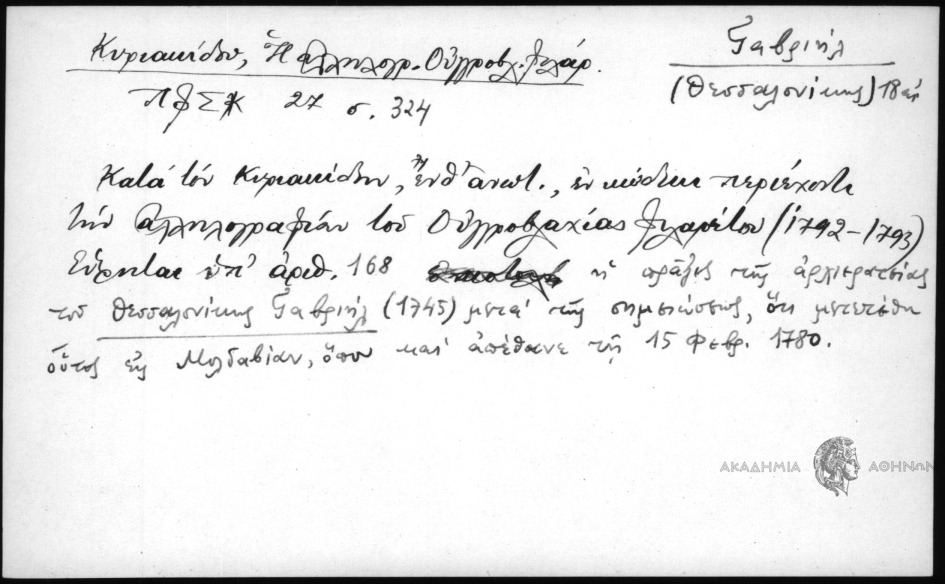 Κυριακίδου, Ἡ ἀλληλογρ. Οὐγγροβλ. Φιλάρ.
Γαβριήλ
(Θεσσαλονίκης) 18 αἰ
27 σ. 324
Κατά τόν Κυριακίδην, ἔνθ' ἀνωτ., ἐν κώδικι περιέχοντι
τήν ἀλληλογραφίαν τοῦ Οὐγγροβλαχίας Φιλαρέτου (1792-1793)
Εὕρηται ὑπ' ἀριθ. 168 ἡ πρᾶξις τῆς ἀρχιερατείας
τοῦ Θεσσαλονίκης Γαβριήλ (1745) μετά τῆς σημειώσεως, ὅτι μετετέθη
οὗτος εἰς Μολδαβίαν, ὅπου καί ἀπέθανε τῇ 15 Φεβρ. 1780.
ΑΚΑΔΗΜΙΑ ΑΘΗΝΩΝ